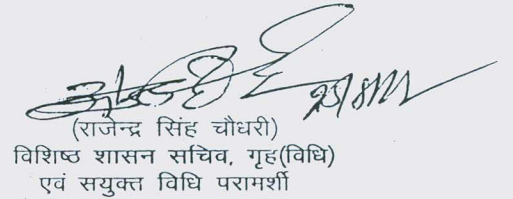 (राजेन्द्र सिंह चौधरी)
विशिष्ठ शासन सचिव, गृह(विधि)
एवं सयुक्त विधि परामर्शी